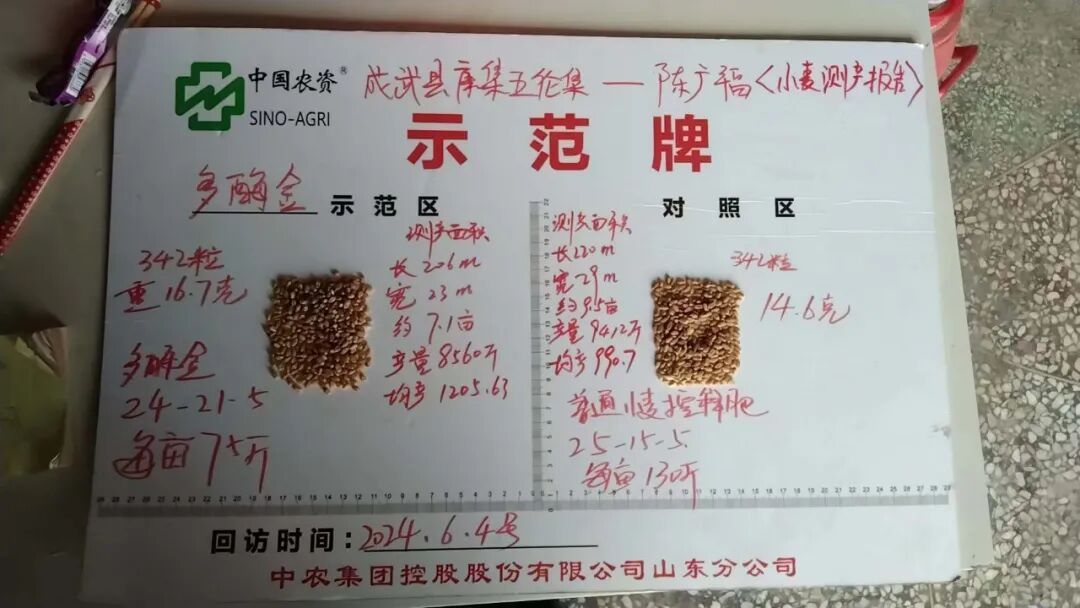 中国农资®
SINO-AGRI
成武县库集五伦集——陈广福<小麦测产报告>
示范牌
多酶金 示范区
342粒
重16.7克
多酶金
24-21-5
每亩75斤
测产面积
长206m
宽23m
约7.1亩
产量8560斤
均产1205.63
对照区
测产面积
长220m
宽29m
约9.5亩
产量9412斤
均产990.7
342粒
14.6克
普通小麦控释肥
25-15-5
每亩130斤
回访时间:2024.6.4号
中农集团控股股份有限公司山东分公司